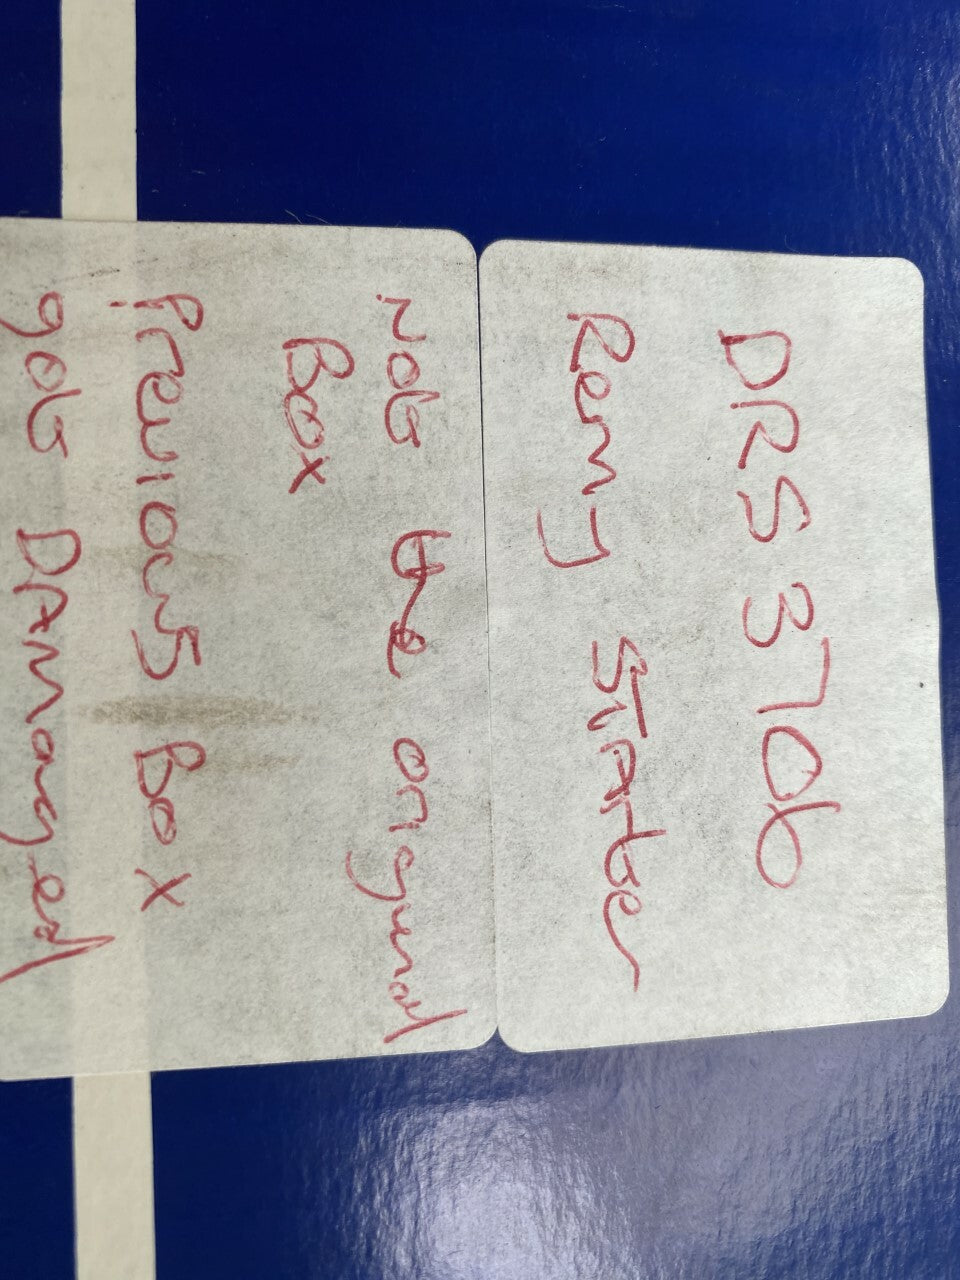 DRS 3706
Remy Starter
Not the original
Box
Previous Box
got DAmaged